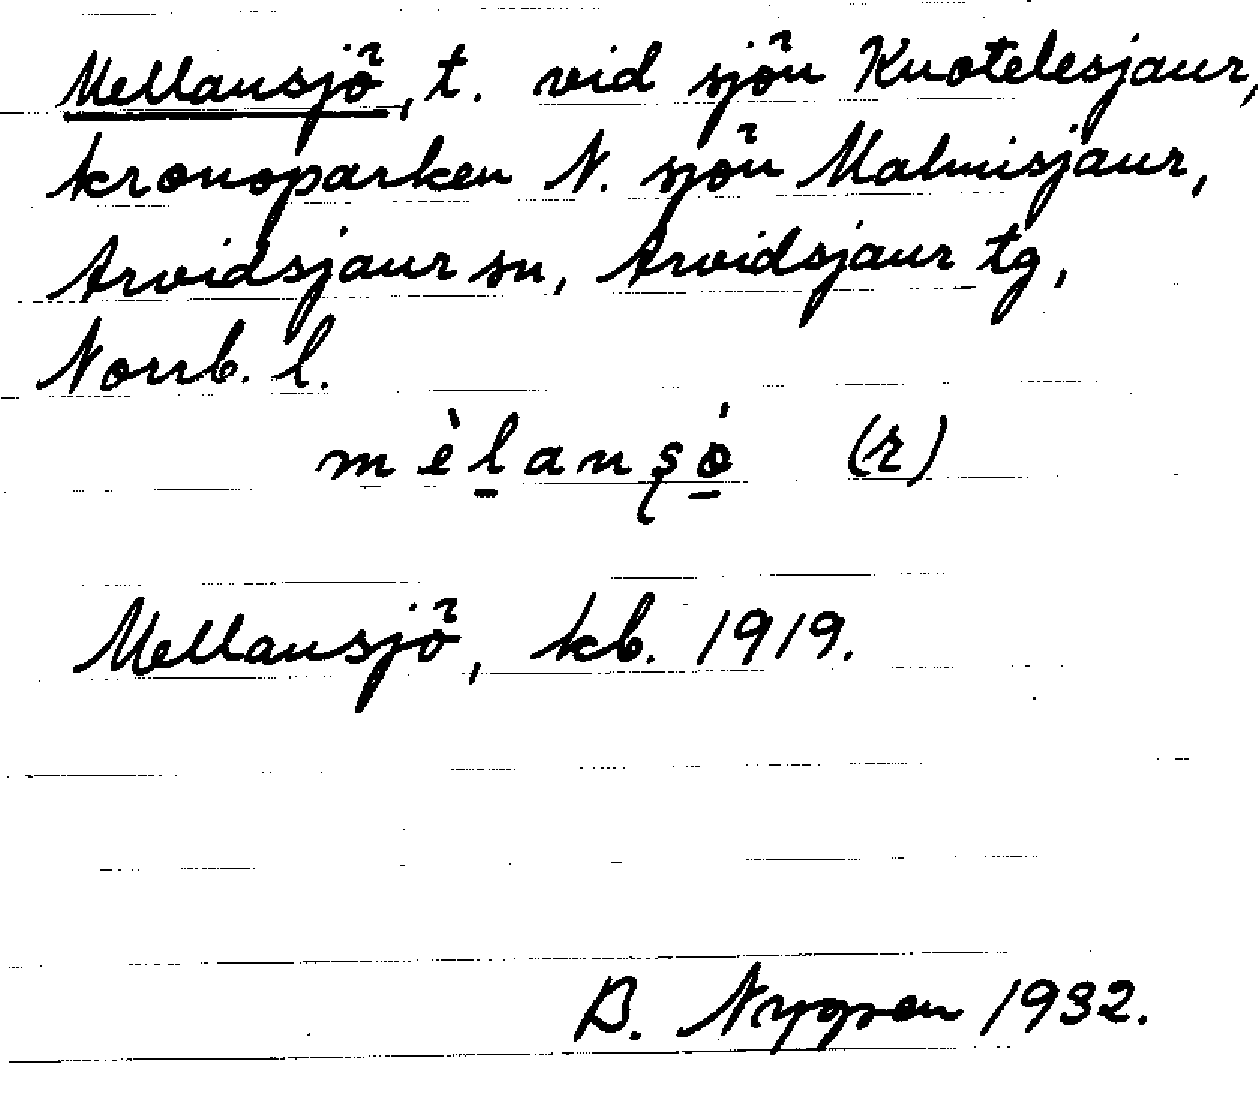 Mellansjö, t. vid sjön Kuotelesjaur,
kronoparken N. sjön Malmisjaur,
Arvidsjaur sn, Arvidsjaur tg,
Norrb. l.
mèlanşö́ (r)
Mellansjö, kb. 1919.
B. Nygren 1932.